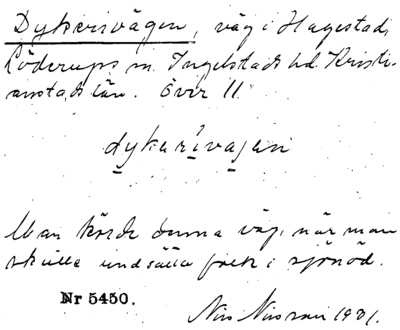 Dykerivägen, väg i Hagestad,
Löderups sn. Ingelstads hd. Kristi-
anstads län. Över 11
dykarivajen
Man körde denna väg, när man
skulle undsätta folk i sjönöd.
Nr 5450.
Nils Nilsson 1931.